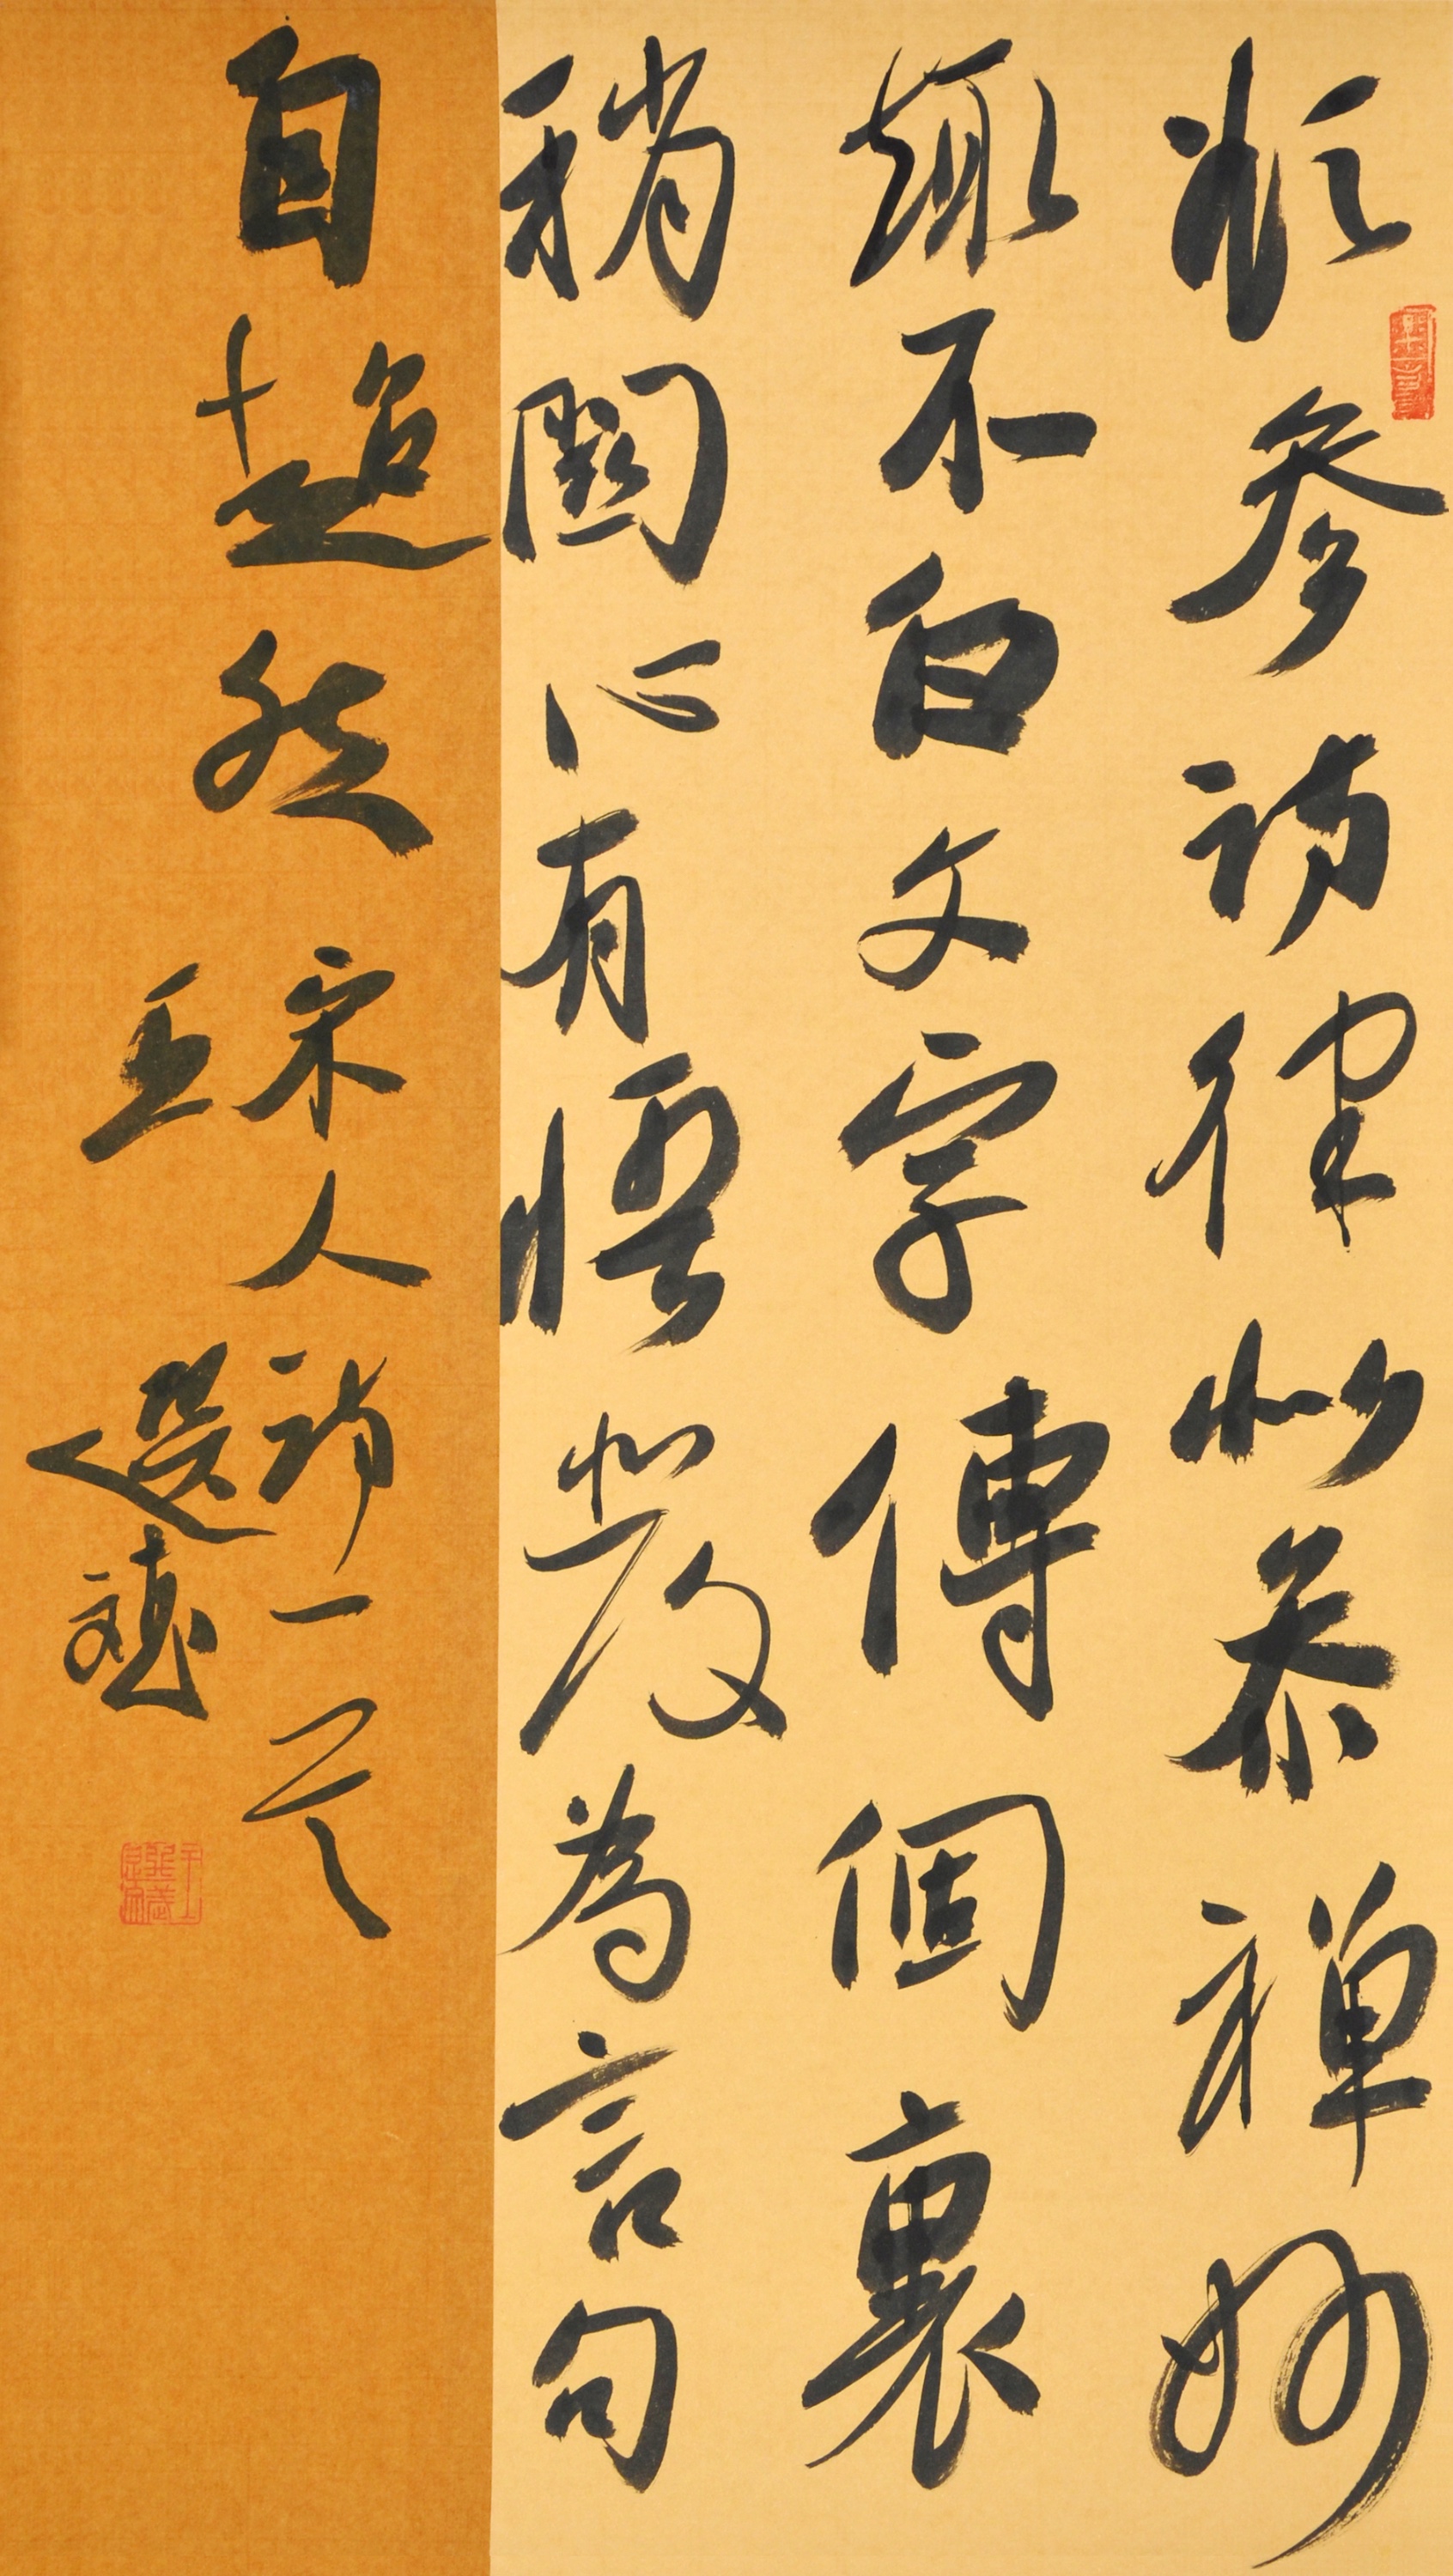 欲參詩律似參禪妙
趣不由文字傳個裏
稍關心有悟發為言句
自超然 宋人詩一首
王選